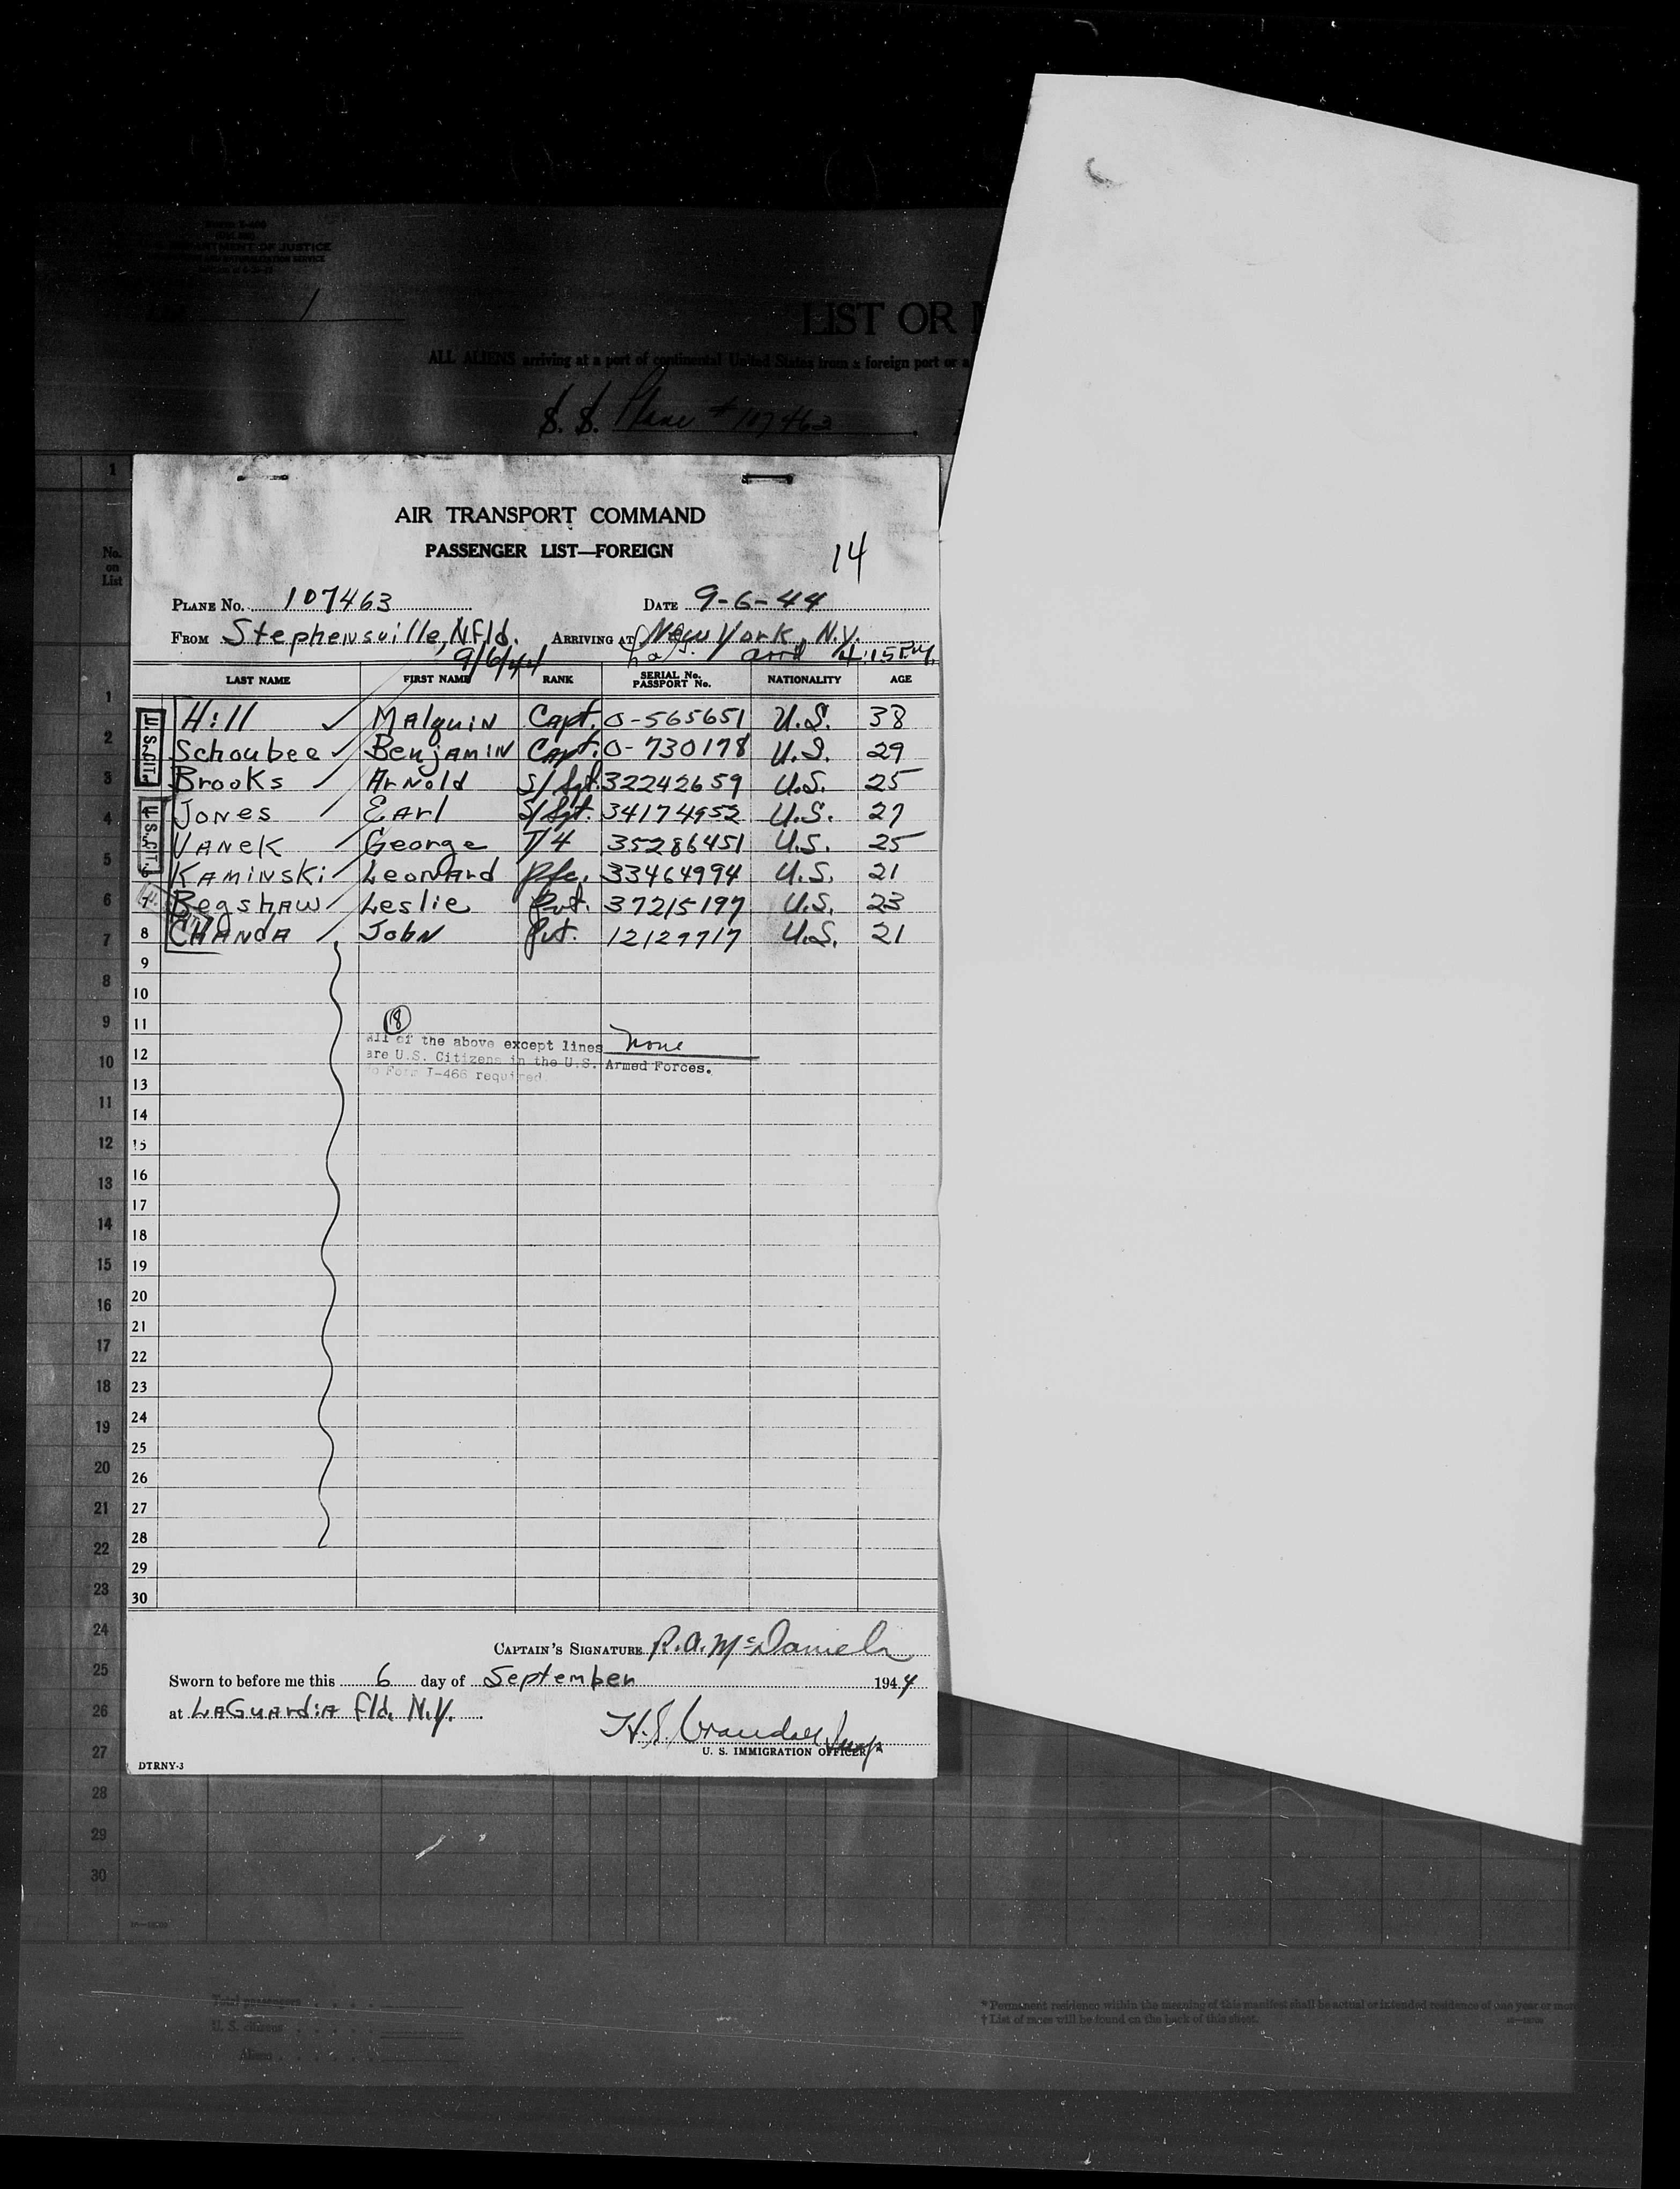 DEPARTMENT OF JUSTICE
1
LIST OR
ALL ALIENS arriving at a port of continental United States from a foreign port or a
S. S. Plane # 107463
AIR TRANSPORT COMMAND
PASSENGER LIST—FOREIGN
14
PLANE No. 107463 DATE 9-6-44
FROM Stephensville, Nfld. ARRIVING AT New York, N.Y.
9/6/44 arrd 4:15 P.M.
LAST NAME FIRST NAME RANK SERIAL No. PASSPORT No. NATIONALITY AGE
Hill Malquin Capt. O-565651 U.S. 38
Schoubee Benjamin Capt. O-730178 U.S. 29
Brooks Arnold S/Sgt. 32242659 U.S. 25
Jones Earl S/Sgt. 34174952 U.S. 27
Vanek George T/4 35286451 U.S. 25
Kaminski Leonard Pfc. 33464994 U.S. 21
7 Begshaw Leslie Pvt. 37215197 U.S. 23
8 Chanda John Pvt. 12129717 U.S. 21
U.S. CIT.
U.S. CIT.
9
10
11
12
13
14
15
16
17
18
19
20
21
22
23
24
25
26
27
28
29
30
8
All of the above except lines None
are U.S. Citizens in the U.S. Armed Forces.
No Form I-466 required.
CAPTAIN'S SIGNATURE R.A. McDaniel
Sworn to before me this 6 day of September 1944
at LaGuardia Fld. N.Y.
H.S. Crandall
U. S. IMMIGRATION OFFICER
DTRNY-3
No. on List
1
2
3
4
5
6
7
8
9
10
11
12
13
14
15
16
17
18
19
20
21
22
23
24
25
26
27
28
29
30
Total passengers
U. S. citizens
Aliens
* Permanent residence within the meaning of this manifest shall be actual or intended residence of one year or mor
† List of races will be found on the back of this sheet.